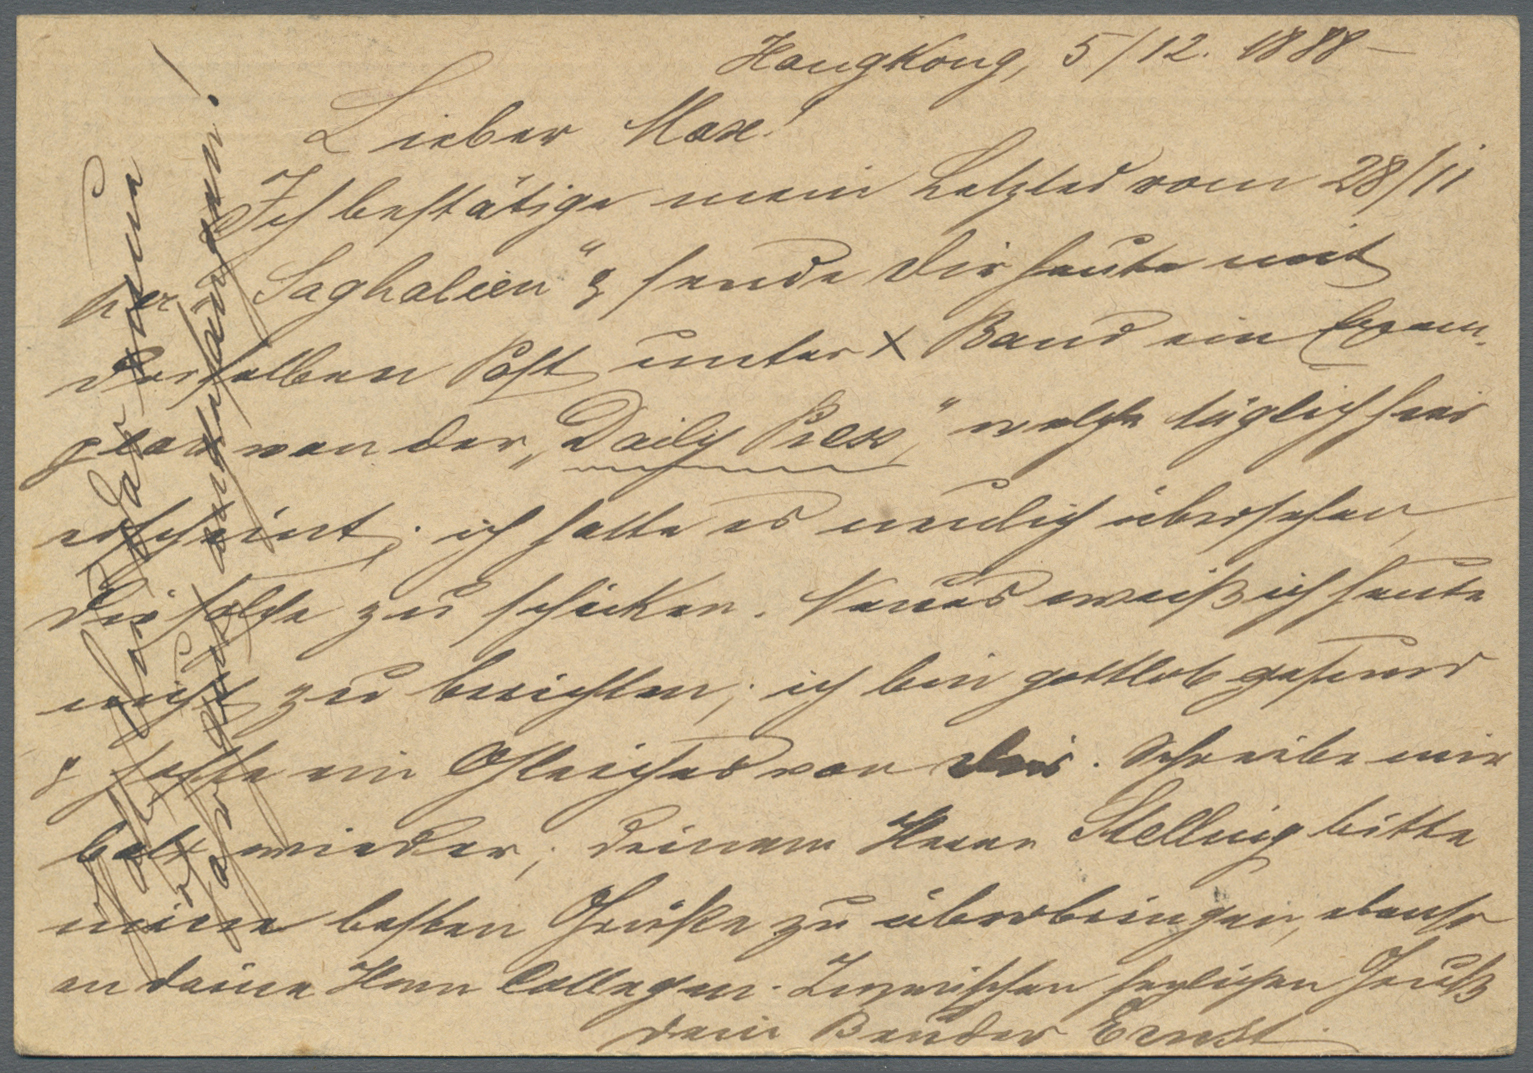 Hongkong, 5/12. 1888 –
Lieber Max!
Ich bestätige mein Letztes vom 28/11
per „Saghalien“ & sende Dir heute mit
derselben Post unter X Band ein Exem-
plar von der „Daily Press“, welche täglich hier
erscheint; ich hatte es neulich übersehen,
Dir solche zu schicken. Neues weiß ich heute
nicht zu berichten; ich bin gottlob gesund
& hoffe ein Gleiches von Dir. Schreibe mir
bald wieder; Deinem Herrn Stelling bitte
meine besten Grüße zu überbringen, ebenso
an Deine Herrn Collegen. Inzwischen herzlichen Gruß
Dein Bruder Ernst.